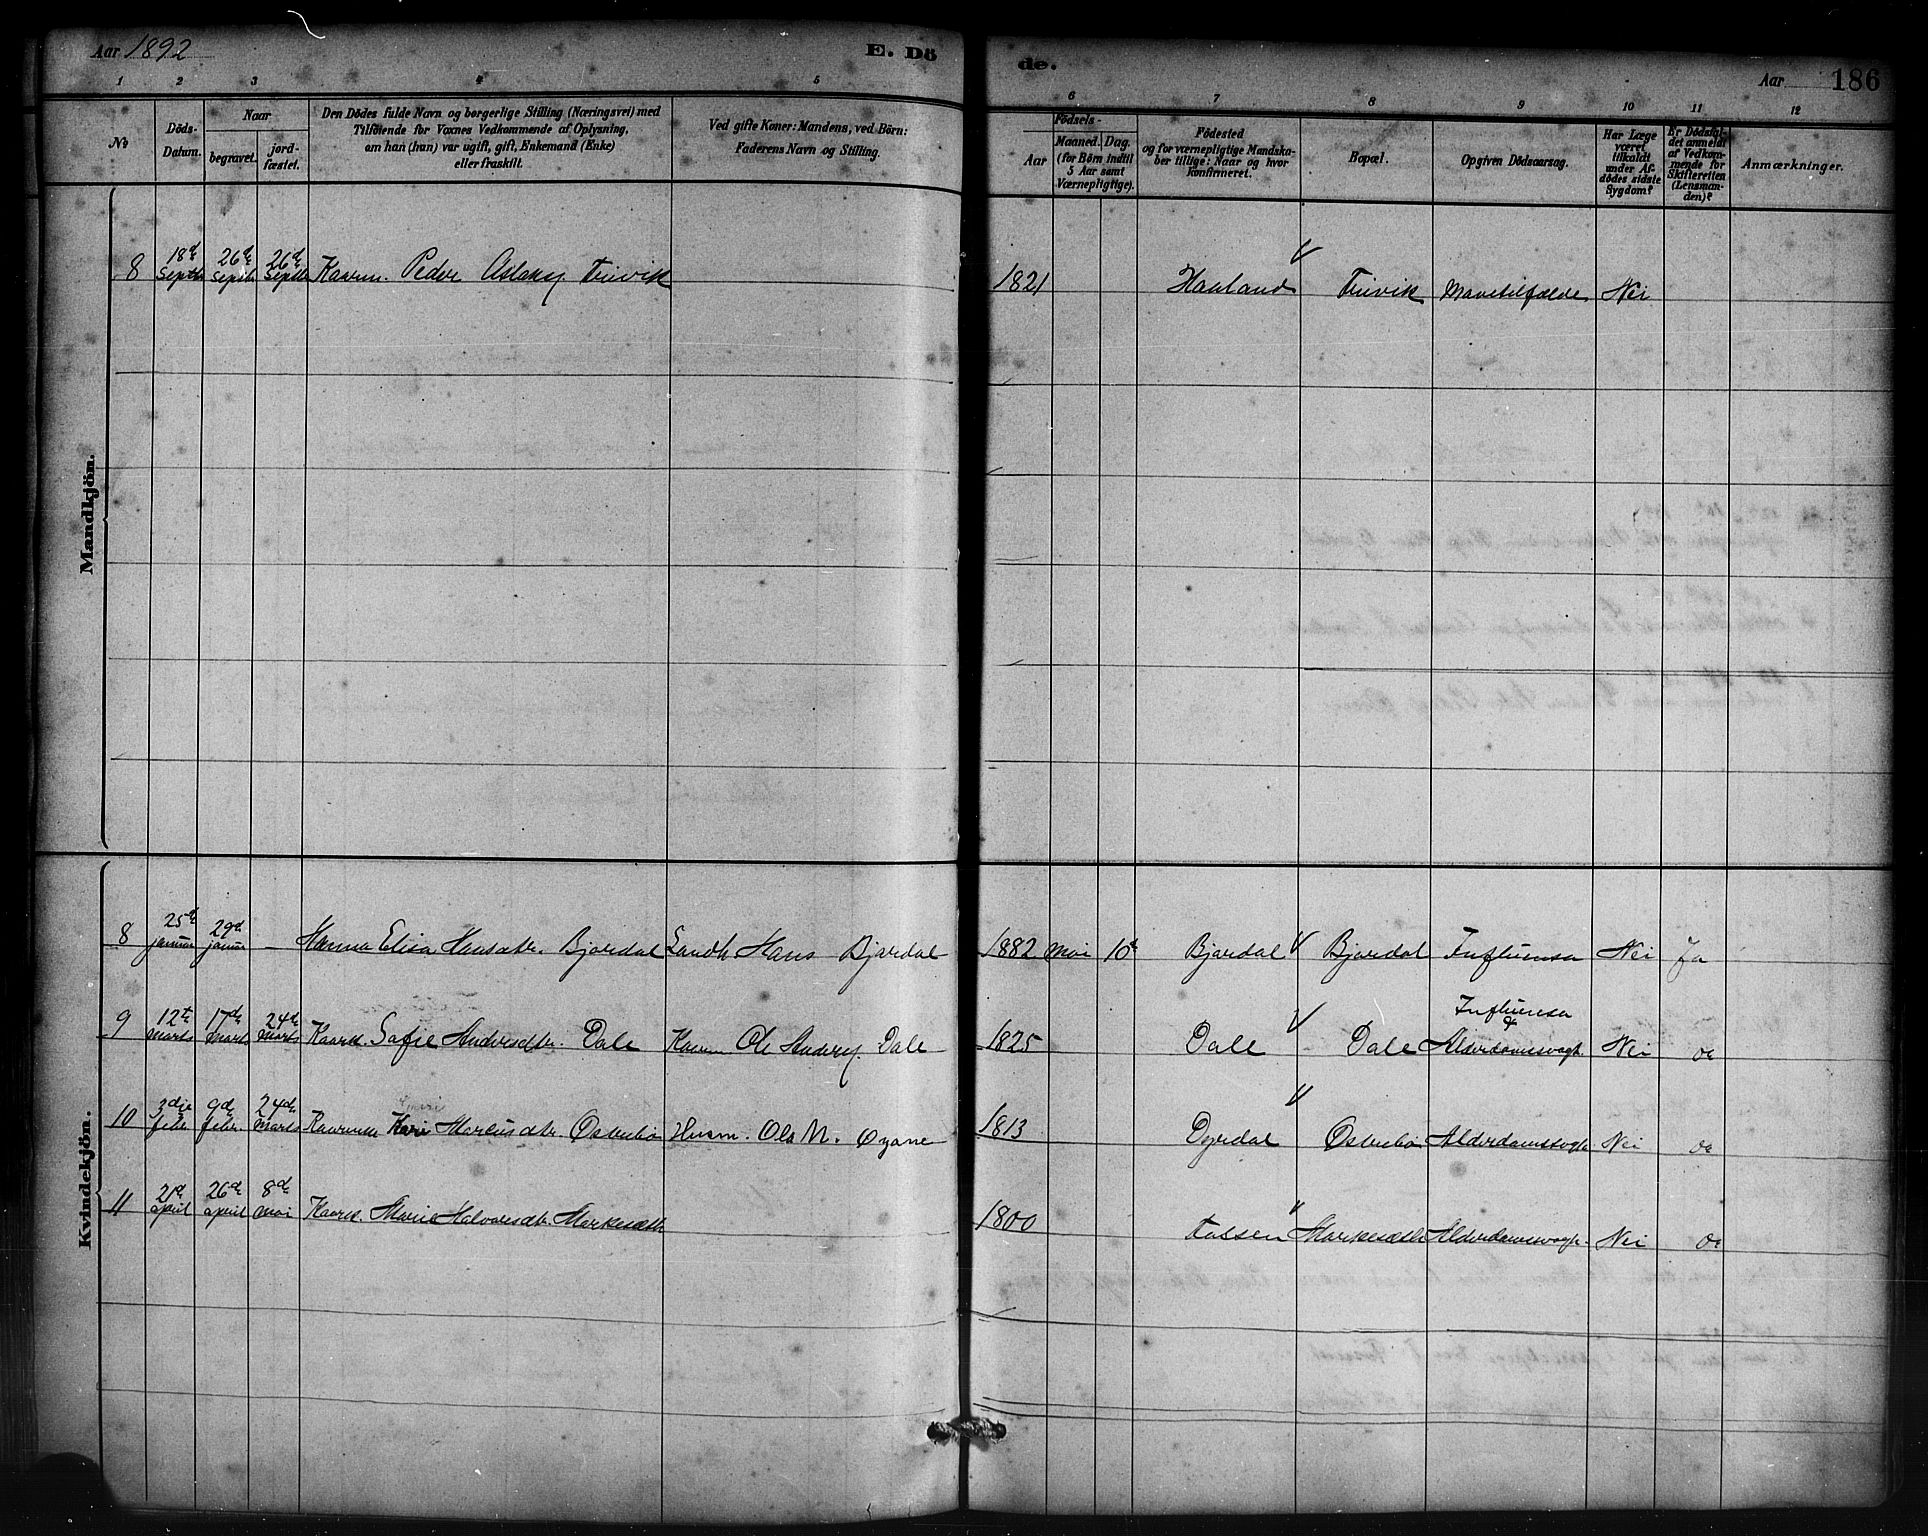 Aar 1892
E. Dö
de.
Aar
186
1 2 3 4 5 6 7 8 9 10 11 12
No
Döds-
Datum.
Naar
begravet.
jord-
fæstet.
Den Dödes fulde Navn og borgerlige Stilling (Næringsvei) med
Tilföiende for Voxnes Vedkommende af Oplysning,
om han (hun) var ugift, gift, Enkemand (Enke)
eller fraskilt.
Ved gifte Koner: Mandens, ved Börn:
Faderens Navn og Stilling.
Födsels-
Aar
Maaned. Dag.
(for Börn indtil
5 Aar samt
Værnepligtige).
Födested
og for værnepligtige Mandska-
ber tillige: Naar og hvor
konfirmeret.
Bopæl.
Opgiven Dödsaarsag.
Har Læge
været
tilkaldt
under Af-
dödes sidste
Sygdom?
Er Dödsfal-
det anmeldt
af Vedkom-
mende for
Skifteretten
(Lensman-
den)?
Anmærkninger.
Mandkjön.
8 18de Septbr 26de Septbr 26de Septbr Kaarm. Peder Aslaks. Trivik 1821 Haaland Trivik Mavetilfælde Nei
Kvindekjön.
8 25de januar 29de januar – Hanna Elisa Hansdtr. Bjordal Landh. Hans Bjordal 1882 Mai 10de Bjordal Bjordal Influensa Nei Ja
9 12te Marts 17de Marts 24de Marts Kaark. Safie Andersdtr. Dale Kaarm Ole Anders. Dale 1825 Dale Dale Influensa & Alderdomssvagh. Nei
10 3die febr. 9de febr. 24de Marts Kari Marcusdtr. Østerbø Husm. Ola M. Øyane 1813 Dyrdal Østerbø Alderdomssvagh. Nei
11 21de april 26de april 8de Mai Kaark. Marie Halvorsdtr. Markesæth 1800 Tossen Markesæth Alderdomssvagh. Nei